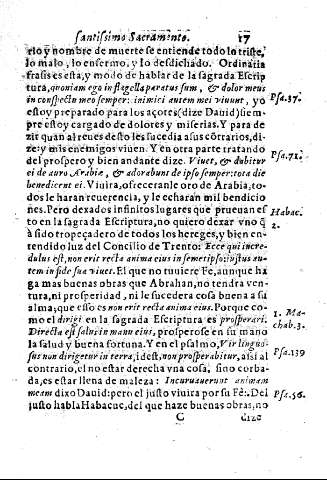 santissimo Sacramento. 17
rio y nombre de muerte se entiende todo lo triste,
lo malo, lo enfermo, y lo desdichado. Ordinaria
frasis es esta, y modo de hablar de la sagrada Escrip
tura, quoniam ego in flagella paratus sum, & dolor meus
in conspectu meo semper: inimici autem mei viuunt, yo Psa.37.
estoy preparado para los açotes (dize Dauid) siem-
pre estoy cargado de dolores y miserias. Y para de
zir quan al reues desto les sucedia a sus cōtrarios, di-
ze: y mis enemigos viuen. Y en otra parte tratando
del prospero y bien andante dize. Viuet, & dabitur Psa.71.
ei de auro Arabia, & adorabunt de ipso semper: tota die
benedicent ei. Viuira, ofreceranle oro de Arabia, to-
dos le haran reuerencia, y le echaran mil bendicio
nes. Pero dexados infinitos lugares que prueuan es
to en la sagrada Escriptura, no quiero dexar vno q̄ Habac.
à sido tropeçadero de todos los hereges, y bien en- 2.
tendido luz del Concilio de Trento: Ecce qui incre-
dulus est, non erit recta anima eius in semetipso: iustus au-
tem in fide sua viuet. El que no tuuiere Fè, aunque ha
ga mas buenas obras que Abrahan, no tendra ven-
tura, ni prosperidad, ni le sucedera cosa buena a su
alma; que esso es non erit recta anima eius. Porque co-
mo el dirigi en la sagrada Escriptura es prosperari, 1. Ma-
Directa est salus in manu eius, prosperose en su mano chab.3.
la salud y buena fortuna. Y en el psalmo, Vir linguo-
sus non dirigetur in terra, idest, non prosperabitur, assi al Psa.139
contrario, el no estar derecha vna cosa, sino corba-
da, es estar llena de maleza: Incuruauerunt animam
meam dixo Dauid: pero el justo viuira por su Fè: Del Psa.56.
justo habla Habacuc, del que haze buenas obras, no
C dize